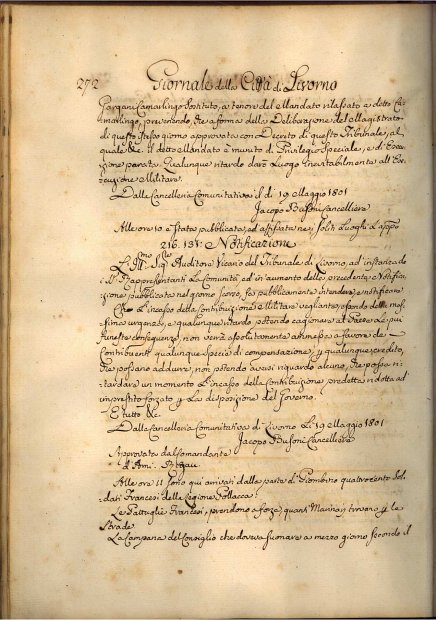 272 Giornale della Città di Livorno
Pargani Camarlingo Sostituto, a tenore del Mandato rilassato a detto Ca-
marlingo, preveniendo, che a forma della Deliberazione del Magistrato
di questo stesso giorno approvata con Decreto di questo Tribunale, al
quale &c. il detto Mandato è munito di Privilegio Speciale, e di Esecu-
zione parata. Qualunque ritardo darà Luogo inevitabilmente all'Ese-
cuzione Militare.
Dalla Cancelleria Comunitativa il dì 19 Maggio 1801
Jacopo Busoni Cancelliere
Alle ore 10 è stata pubblicata, ed affissata nei soliti Luoghi La
216. 137: Notificazione
L'Ill:mo Sig:re Auditore Vicario del Tribunale di Livorno, ad instanza de
Rappresentanti La Comunità, ed in aumento della precedente Notifica-
zione pubblicata nel giorno scorso, fa pubblicamente intendere, e notificare
Che L'incasso della Contribuzione Militare vegliante, essendo della mas-
sima urgenza, e qualunque ritardo potendo cagionare al Paese Le più
funeste conseguenze, non verrà assolutamente ammessa a favore de
Contribuenti qualunque specie di compensazione, per qualunque credito,
che possano addurre, non potendo aversi riguardo alcuno, che possa ri-
tardare un momento L'incasso della Contribuzione predetta ridotta ad
imprestito forzato per La disposizione del Governo.
E tutto &c.
Dalla Cancelleria Comunitativa di Livorno Li 19 Maggio 1801
Jacopo Busoni Cancelliere
Approvata dal Comandante
d'Armi.
Alle ore 11 sono qui arrivati dalla parte di Piombino quattrocento Sol-
dati Francesi della Legione Pollacca.
Le Pattuglie Francesi, prendono a forza quanti Marinari trovano per le
Strade.
La Campana del Consiglio che doveva suonare a mezzo giorno secondo il